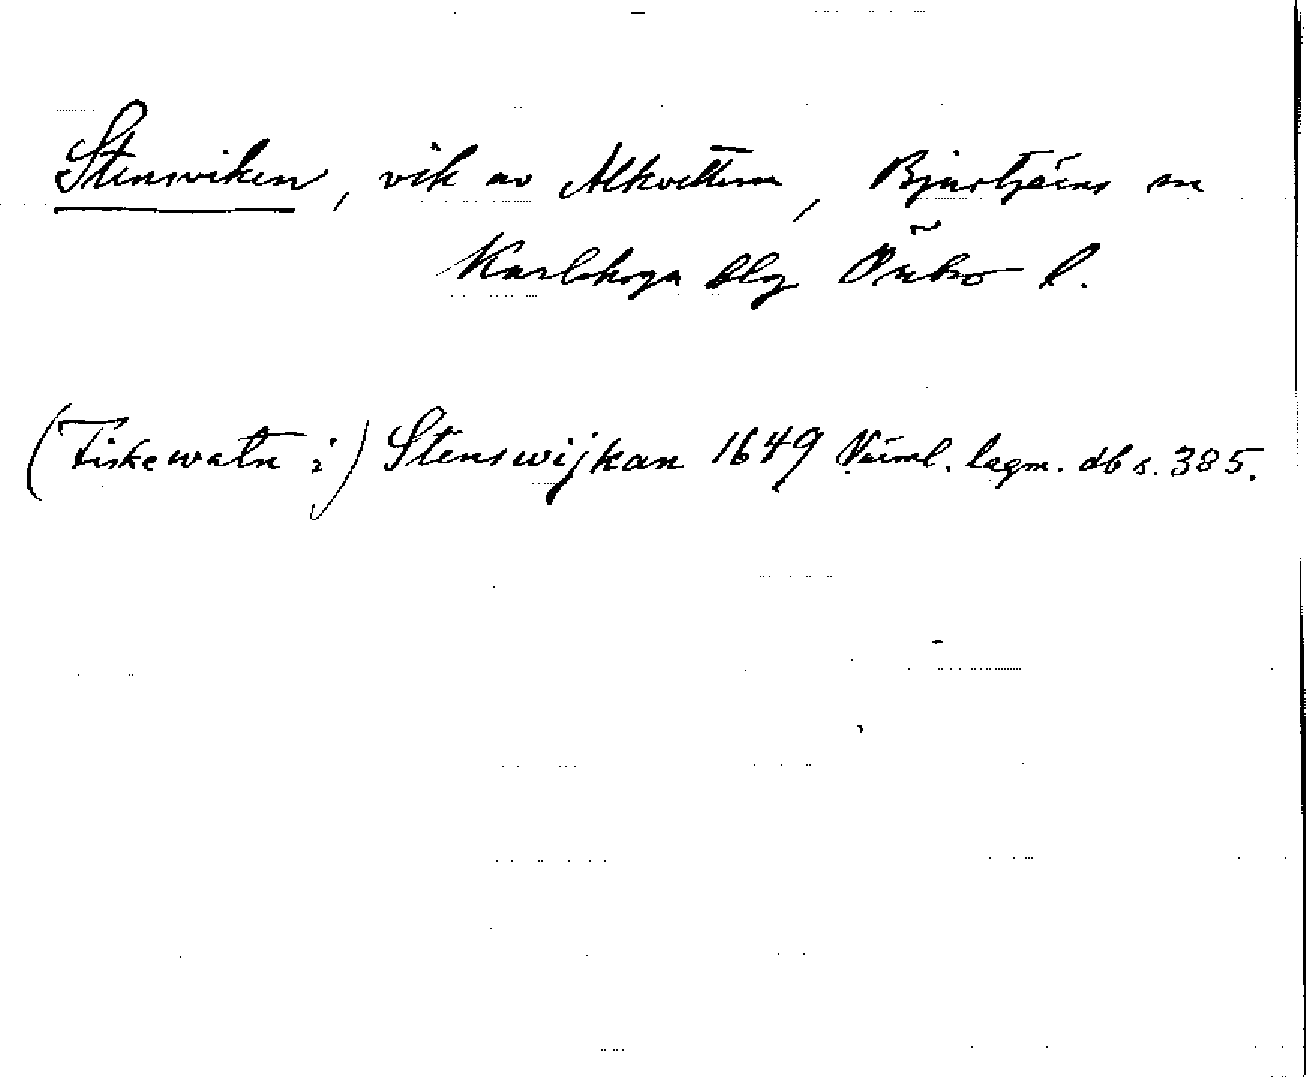 Stensviken, vik av Alkvettern, Bjurtjärns sn
Karlskoga blg Örebro l.
(Fiskewatn i) Stenswijkan 1649 Värml. lagm. db s. 385.